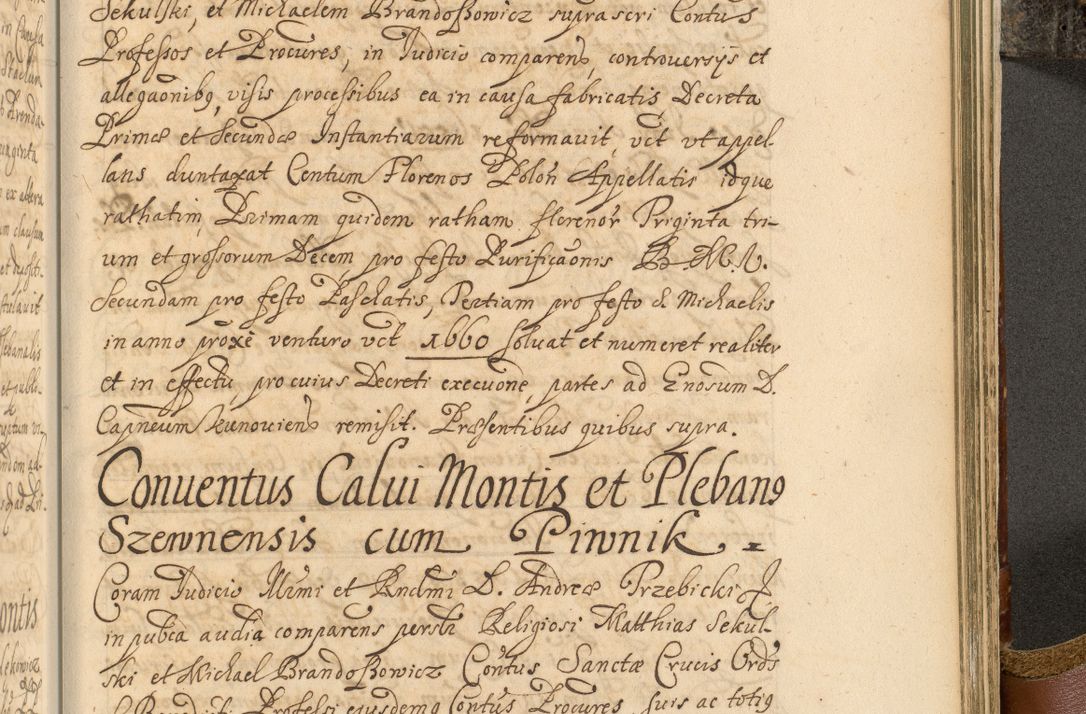 Sekulski, et Michaelem Brandoszowicz suprascri Contus
Professos, et Procures, in Judicio comparens, controversÿs et
allegaonibq, visis processibus ea in causa fabricatis Decreta
Primæ et Secundæ Instantiarum reformauit, vct vt appel-
lans duntaxat Centum Florenos Polon Appellatis idque
rathatim, Primam quidem ratham florenor Triginta tri-
um et grossorum Decem, pro festo Purificaonis B. M. V.
Secundam pro festo Paschatis, Tertiam pro festo S. Michaelis
in anno proxe venturo vct 1660 soluat et numeret realiter
et in effectu, pro cuius Decreti execuone, partes ad Enosum D.
Capneum Kunouiens remisit. Præsentibus quibus supra.
Conuentus Calui Montis et Plebanq
Szewnensis cum Piwnik.
Coram Judicio Illrmi et Rndmi D. Andreæ Trzebicki
in pubca audia comparens persbr Religiosi Matthias Sekul-
ski et Michael Brandoszowicz Contus Sanctæ Crucis Ords
S. Benedicti Professi eiusdemq Contus Procures suis ac totiq